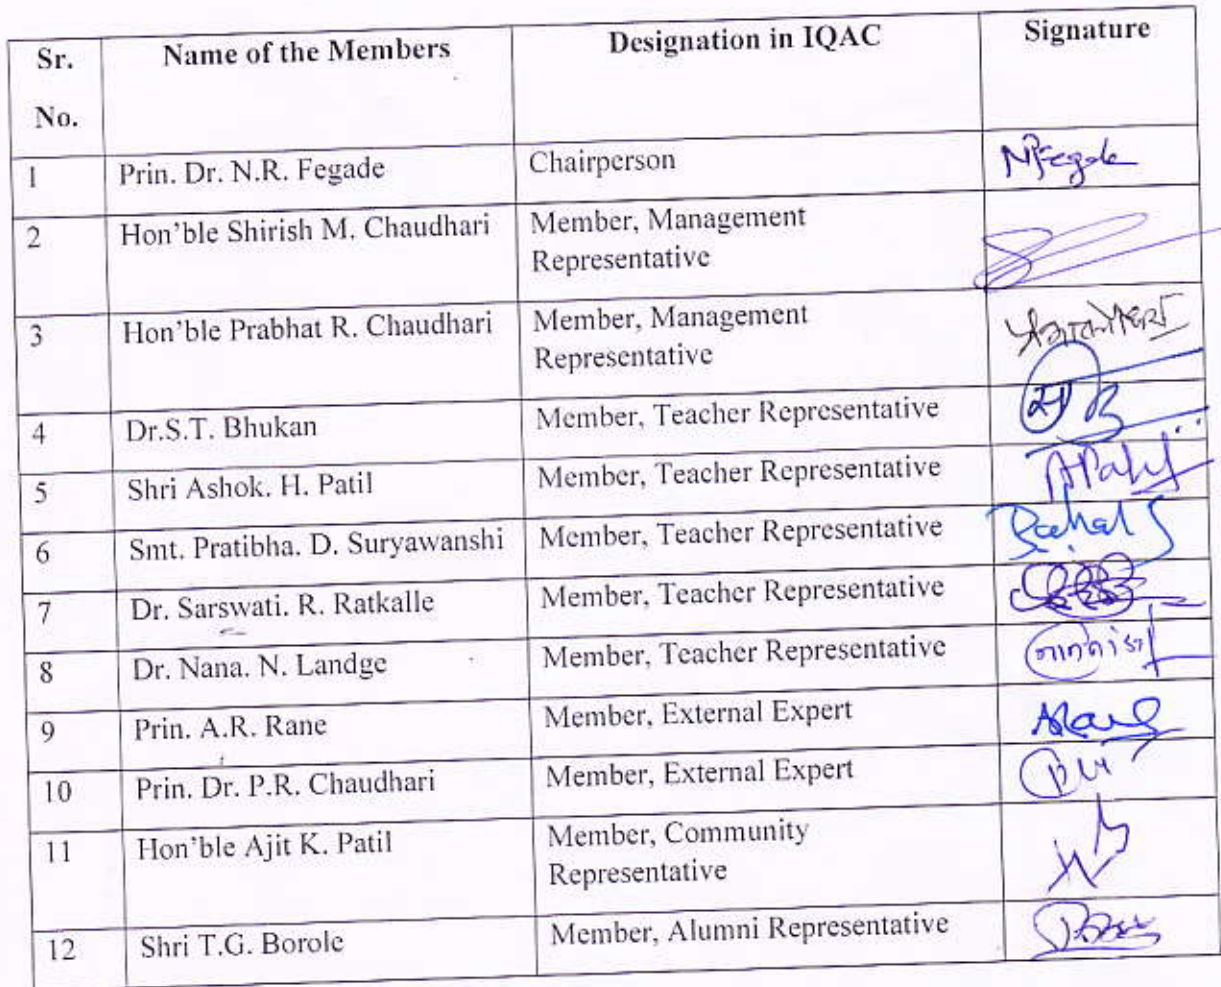 Sr. No. Name of the Members Designation in IQAC Signature
1 Prin. Dr. N.R. Fegade Chairperson NRFegade
2 Hon'ble Shirish M. Chaudhari Member, Management Representative
3 Hon'ble Prabhat R. Chaudhari Member, Management Representative
4 Dr.S.T. Bhukan Member, Teacher Representative
5 Shri Ashok. H. Patil Member, Teacher Representative APatil
6 Smt. Pratibha. D. Suryawanshi Member, Teacher Representative
7 Dr. Sarswati. R. Ratkalle Member, Teacher Representative
8 Dr. Nana. N. Landge Member, Teacher Representative
9 Prin. A.R. Rane Member, External Expert ARane
10 Prin. Dr. P.R. Chaudhari Member, External Expert
11 Hon'ble Ajit K. Patil Member, Community Representative
12 Shri T.G. Borole Member, Alumni Representative